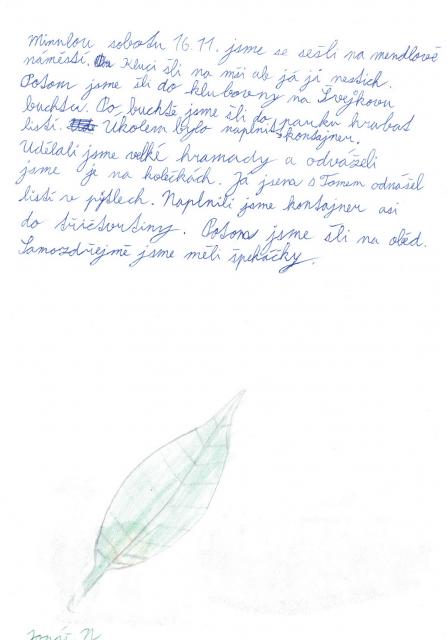 Minulou sobotu 16.11. jsme se sešli na mendlově
náměstí. Kluci šli na mši ale já ji nestich.
Potom jsme šli do klubovny na Švejkovu
buchtu. Po buchtě jsme šli do parku hrabat
listí. Úkolem bylo naplnit kontajner.
Udělali jsme velké hramady a odváželi
jsme je na kolečkách. Já jsem s Tomem odnášel
listí v pytlech. Naplnili jsme kontajner asi
do tříčtvrtiny. Potom jsme šli na oběd.
Samozdřejmě jsme měli špekáčky.
N